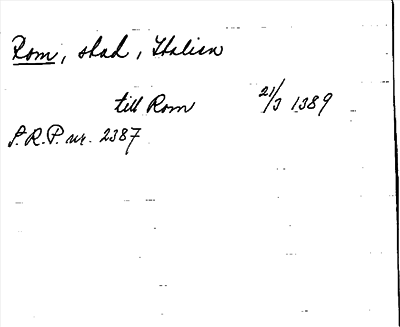 Rom, stad, Italien
till Rom 21/3 1389
S.R.P. nr. 2387